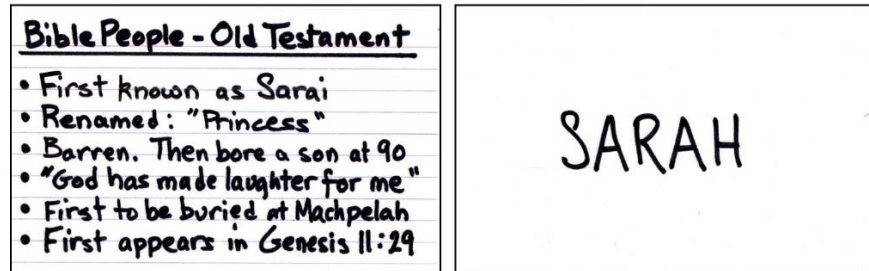 Bible People - Old Testament
• First known as Sarai
• Renamed: "Princess"
• Barren. Then bore a son at 90
• "God has made laughter for me"
• First to be buried at Machpelah
• First appears in Genesis 11:29
SARAH